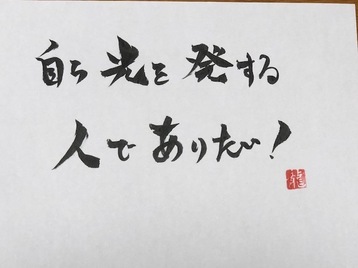 自ら光を発する
人でありたい!